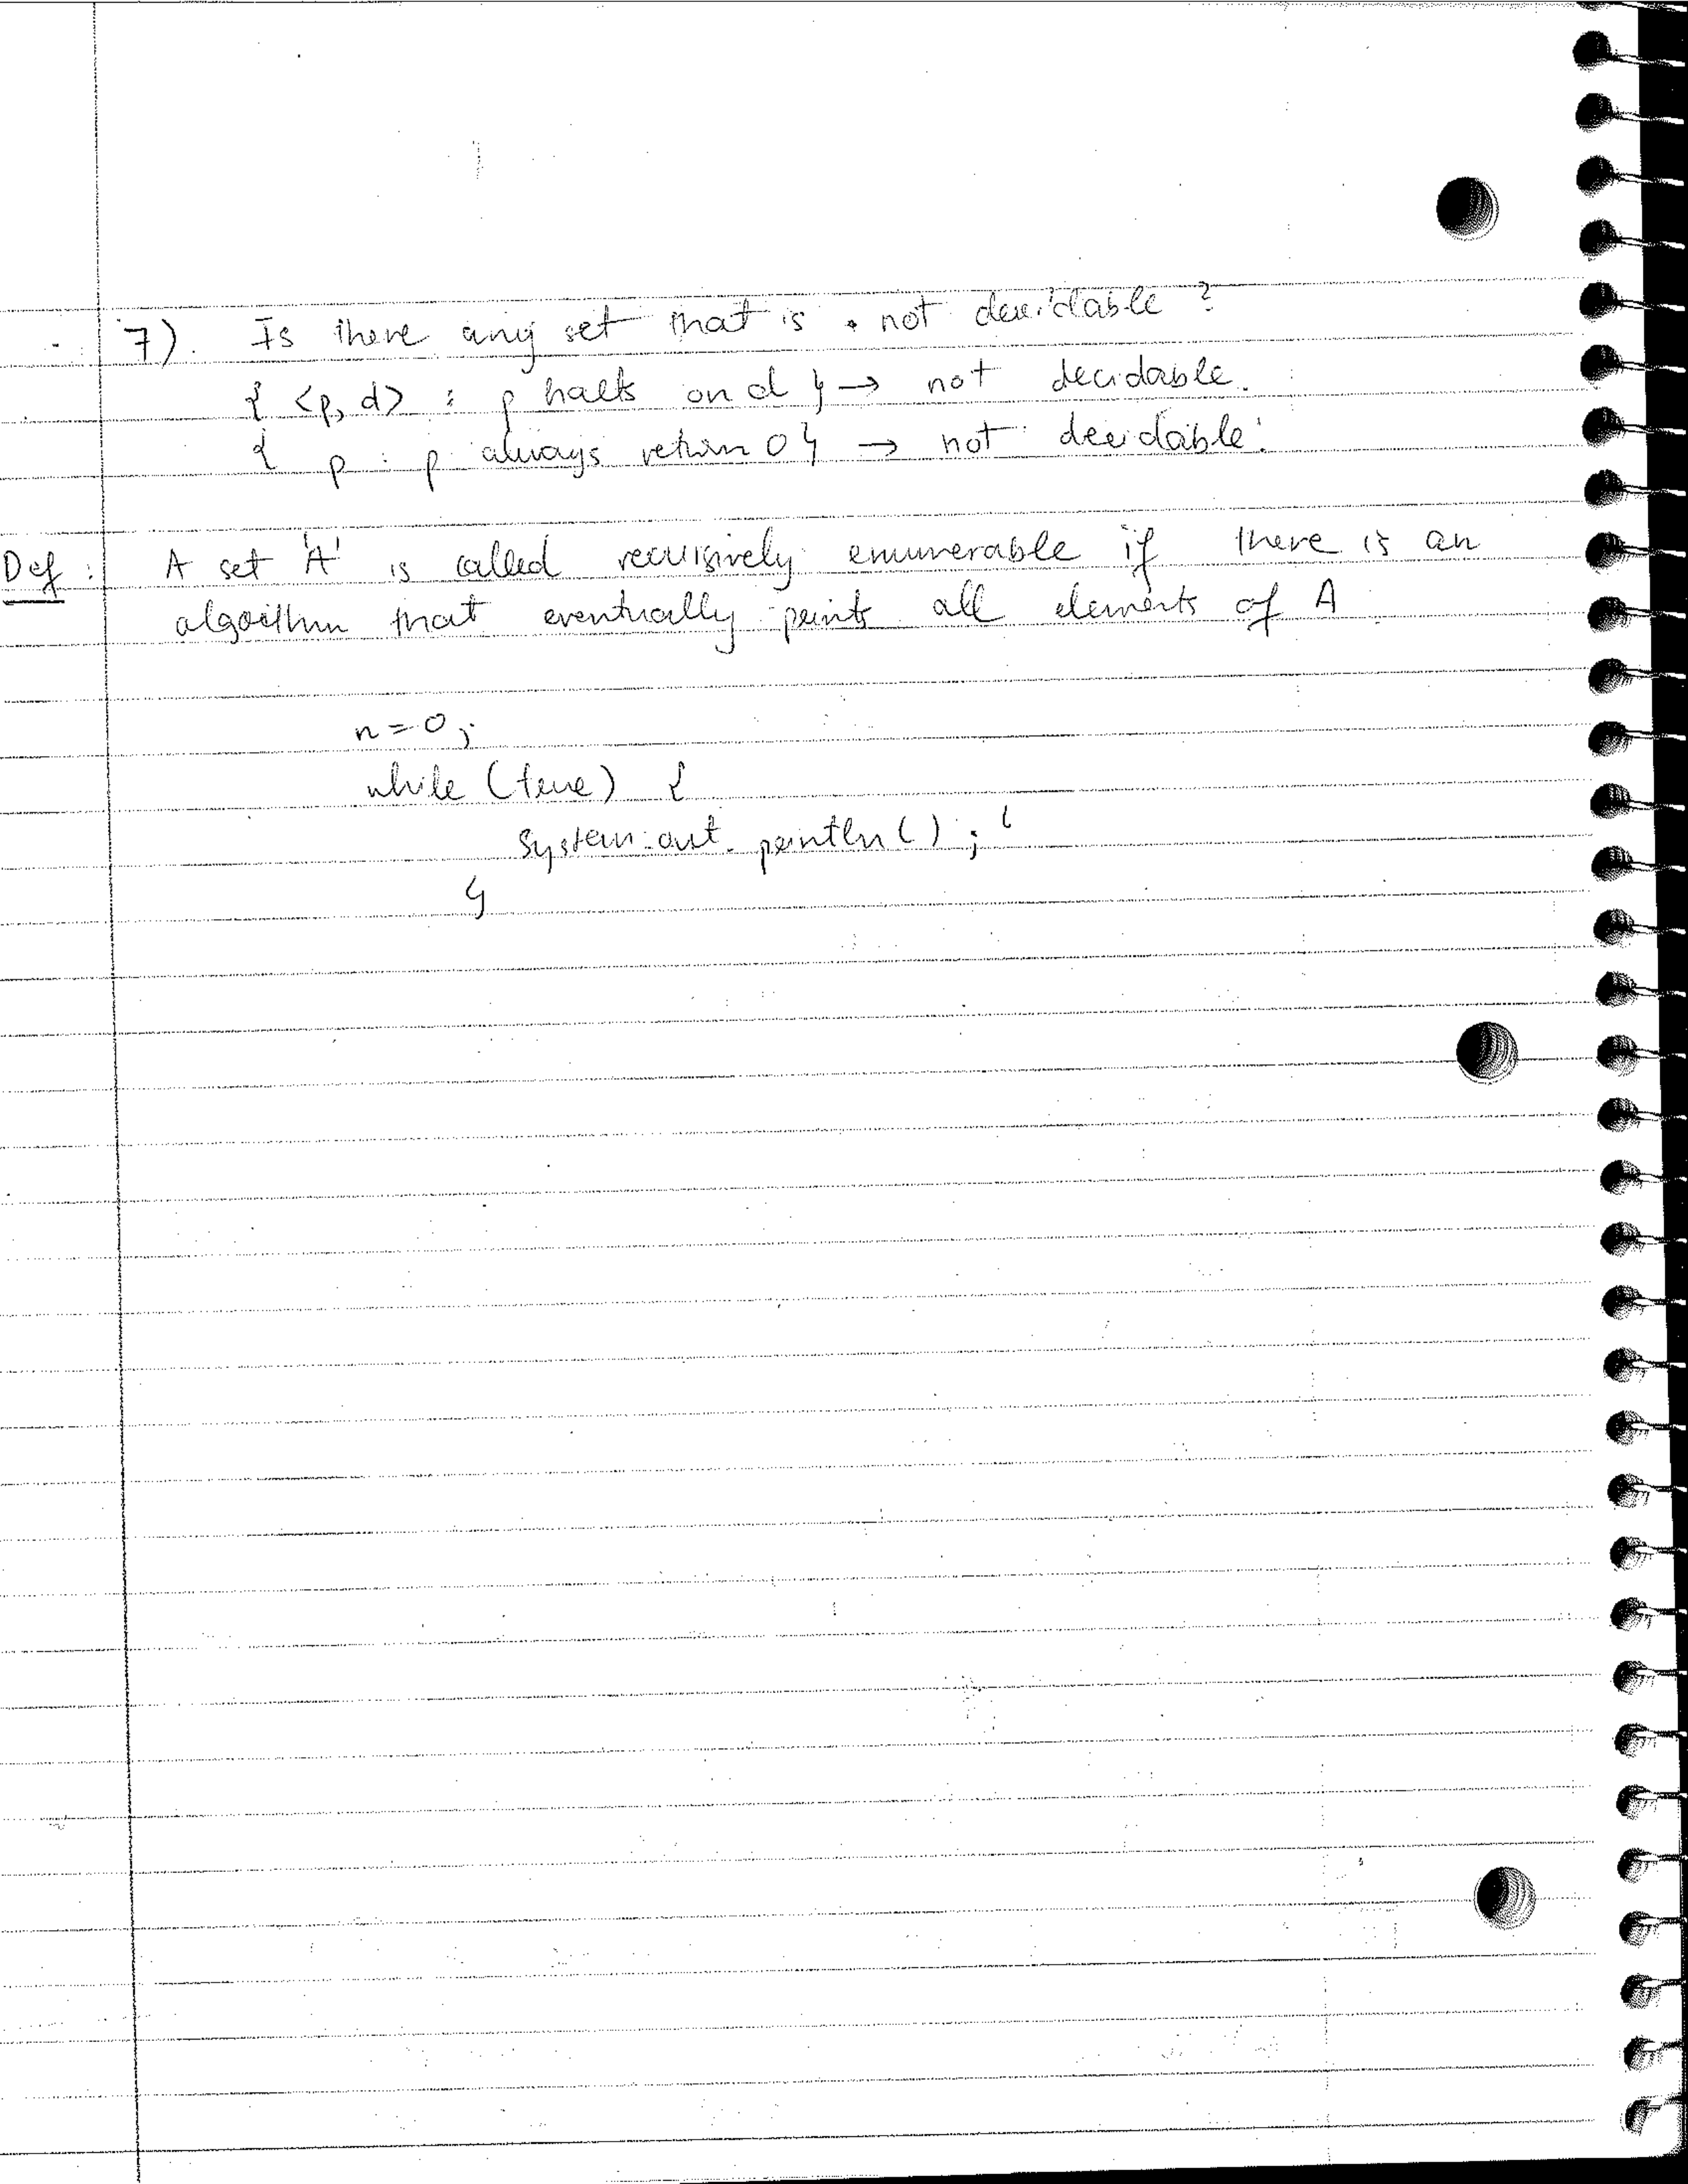 7). Is there any set that is not decidable?
{ <p, d> : p halts on d } → not decidable.
{ p : p always return 0 } → not decidable.
Def: A set 'A' is called recursively enumerable if there is an
algorithm that eventually prints all elements of A
n = 0;
while (true) {
System.out.println();
}